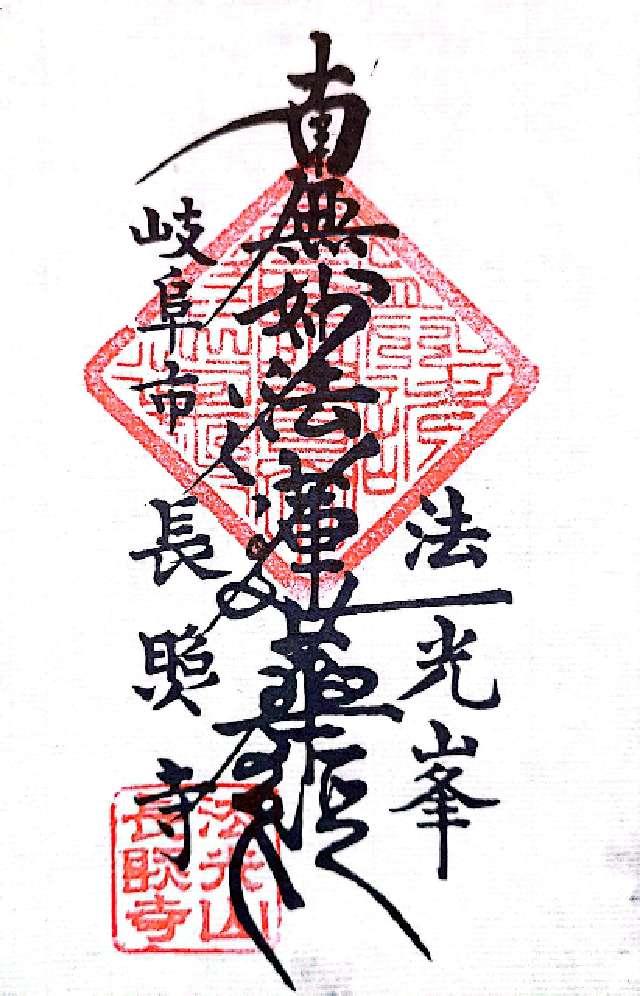 法光峯
南無妙法蓮華経
岐阜市
長照寺
法光山
長照寺